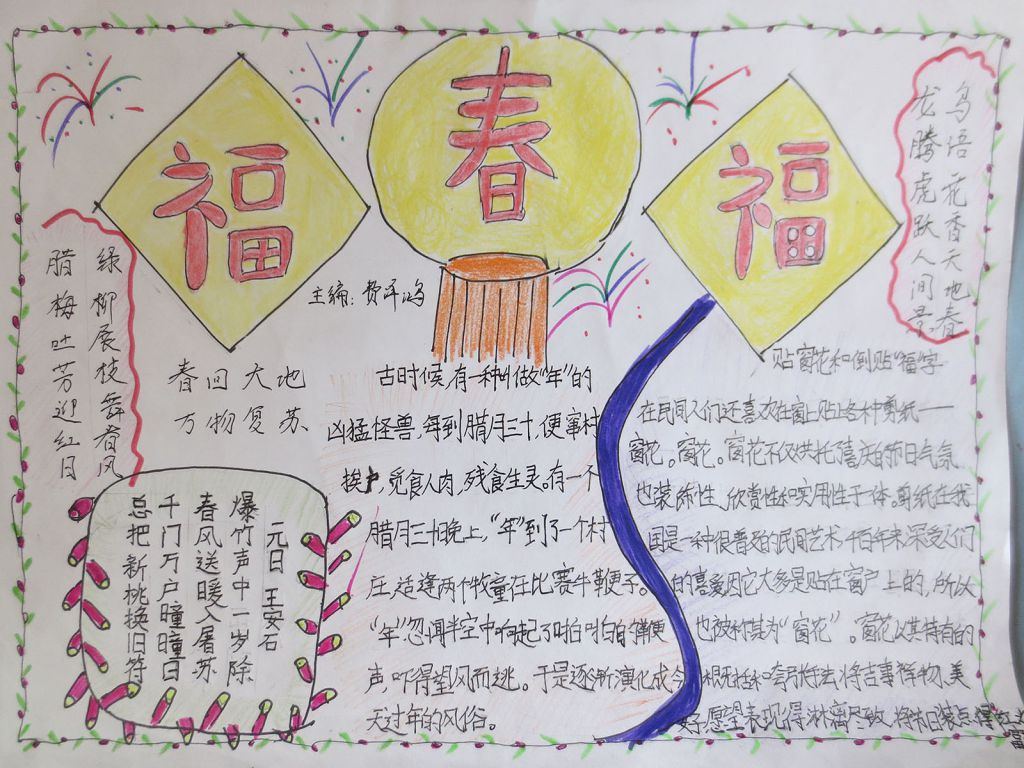 福
春
福
鸟语花香天地春
龙腾虎跃人间景
绿柳展枝舞春风
腊梅吐芳迎红日
主编：费泽鸿
春回大地
万物复苏
元日
王安石
爆竹声中一岁除
春风送暖入屠苏
千门万户曈曈日
总把新桃换旧符
古时候，有一种叫做“年”的
凶猛怪兽，每到腊月三十，便窜村
挨户，觅食人肉，残食生灵。有一个
腊月三十晚上，“年”到了一个村
庄，适逢两个牧童在比赛牛鞭子。
“年”忽闻半空中响起了啪啪的鞭
声，吓得望风而逃。于是逐渐演化成今
天过年的风俗。
贴窗花和倒贴“福”字
在民间人们还喜欢在窗上贴上各种剪纸——
窗花。窗花。窗花不仅烘托了喜庆的节日气氛
也装饰性、欣赏性和实用性于一体。剪纸在我
国是一种很普及的民间艺术，千百年来深受人们
的喜爱因它大多是贴在窗户上的，所以
也被称其为“窗花”。窗花以其特有的
概括和夸张手法将吉事祥物、美
好愿望表现得淋漓尽致，将节日装点得红